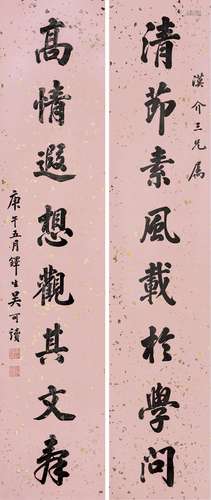 清節素風載於學問
介三兄屬
高情遐想觀其文
庚午五月鐸生吴可讀